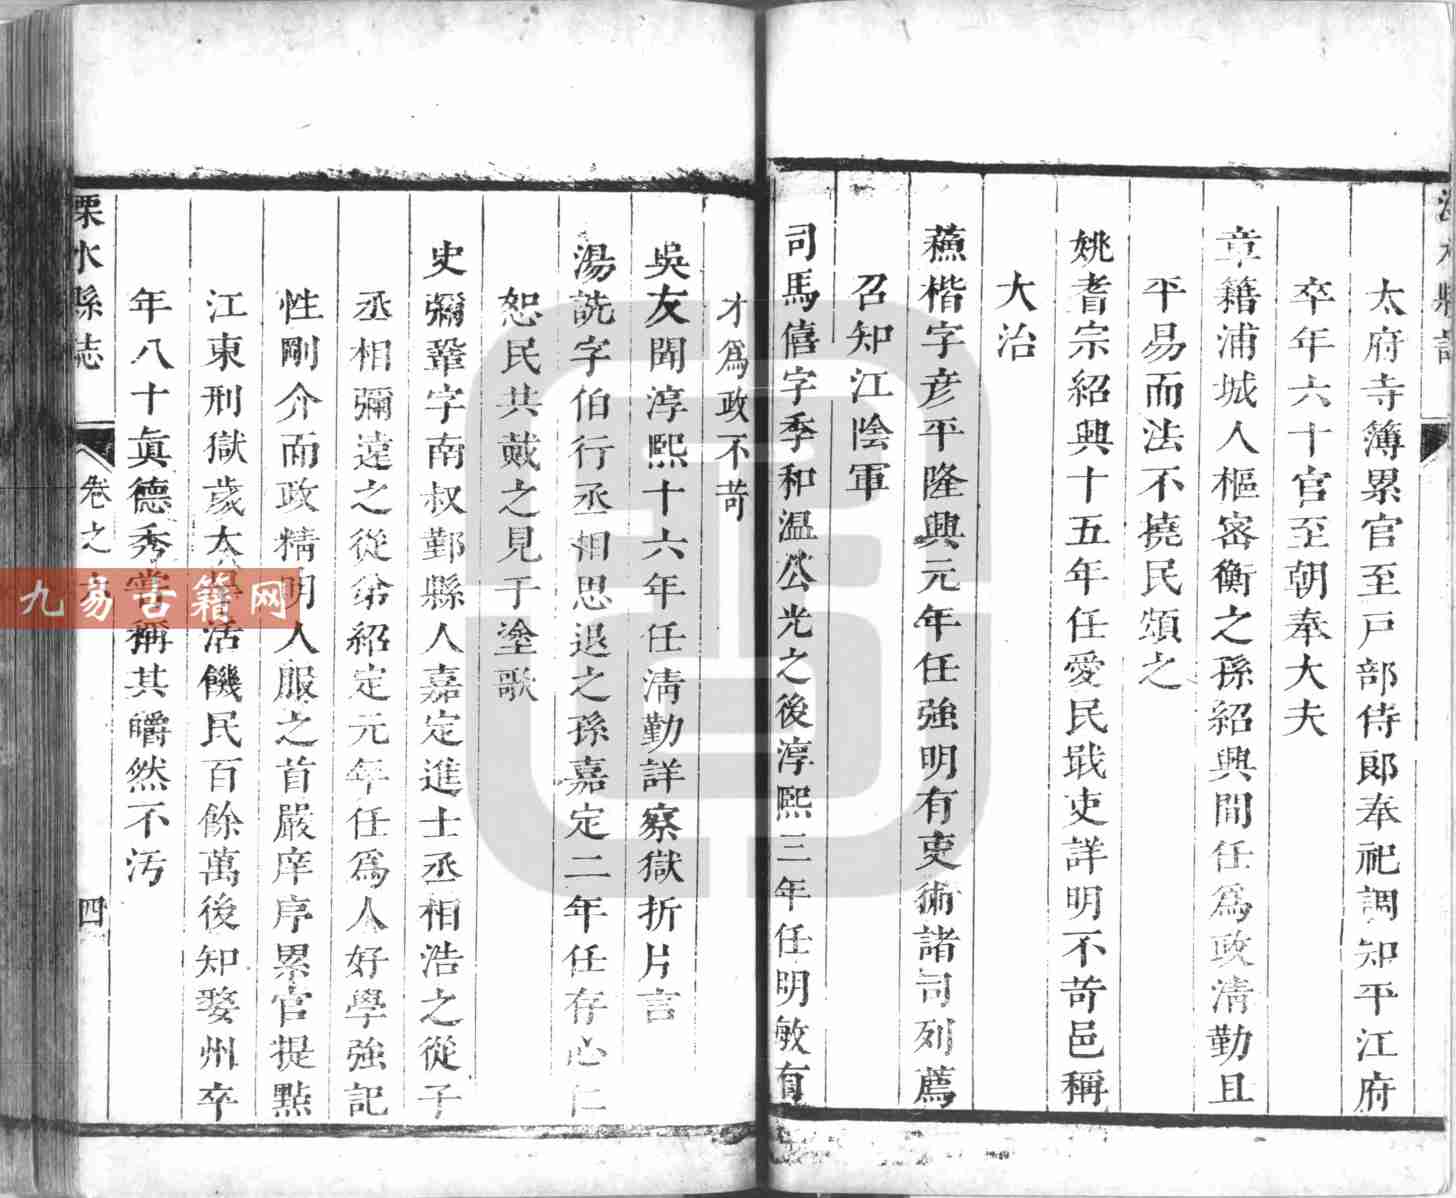 太府寺簿累官至戸部侍郎奉祀調知平江府
卒年六十官至朝奉大夫
章籍浦城人樞宻衡之孫紹興間任爲政清勤且
平易而法不撓民頌之
姚耆宗紹興十五年任愛民戢吏詳明不苛邑稱
大治
蘓楷字彦平隆興元年任強明有吏術諸司列薦
召知江陰軍
司馬僖字季和温公光之後淳熙三年任明敏有
才爲政不苛
吳友聞淳熙十六年任清勤詳察獄折片言
湯詵字伯行丞相思退之孫嘉定二年任存心仁
恕民共戴之見于塗歌
史彌鞏字南叔鄞縣人嘉定進士丞相浩之從子
丞相彌遠之從弟紹定元年任爲人好學強記
性剛介而政精明人服之首嚴庠序累官提㸃
江東刑獄歲大活饑民百餘萬後知婺州卒
年八十眞德秀嘗稱其皭然不汚
栗水縣志
卷之
四
九易古籍网